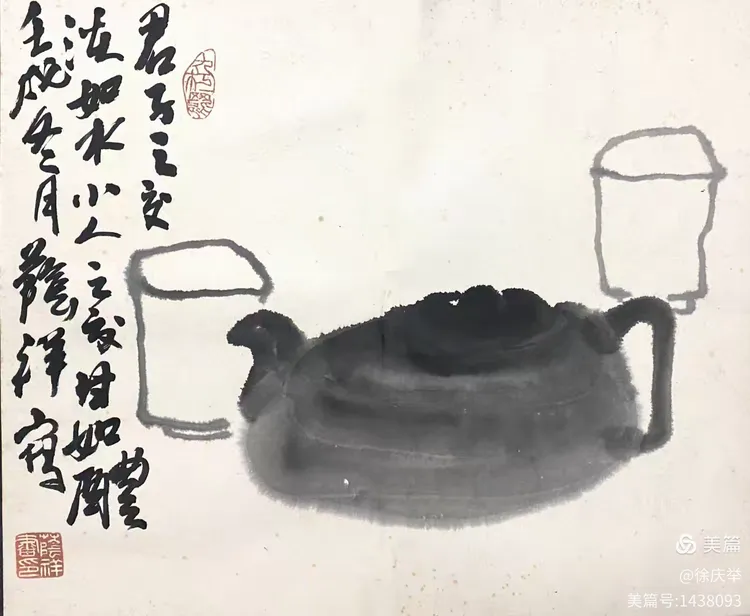 君子之交
淡如水小人之交甘如醴
壬戌冬月蔭祥寫
蔭祥
書印
美篇
@徐庆举
美篇号:1438093